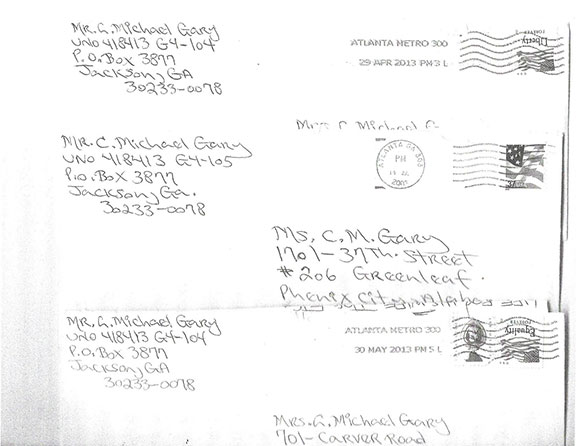 Mr. G. Michael Gary
UNO 418413 G4-104
P.O. Box 3877
Jackson, GA
30233-0078
ATLANTA METRO 300
29 APR 2013 PM 3 L
Liberty
FOREVER
Mr. C. Michael Gary
UNO 418413 G4-105
P.O. Box 3877
Jackson, Ga.
30233-0078
ATLANTA GA 303
PM
Ms. C. M. Gary
1701-37Th. Street
# 206 Greenleaf.
Phenix City,
Mr. G. Michael Gary
UNO 418413 G4-104
P.O. Box 3877
Jackson, GA
30233-0078
ATLANTA METRO 300
30 MAY 2013 PM 5 L
Equality
FOREVER
Mrs. G. Michael Gary
701-Carver Road